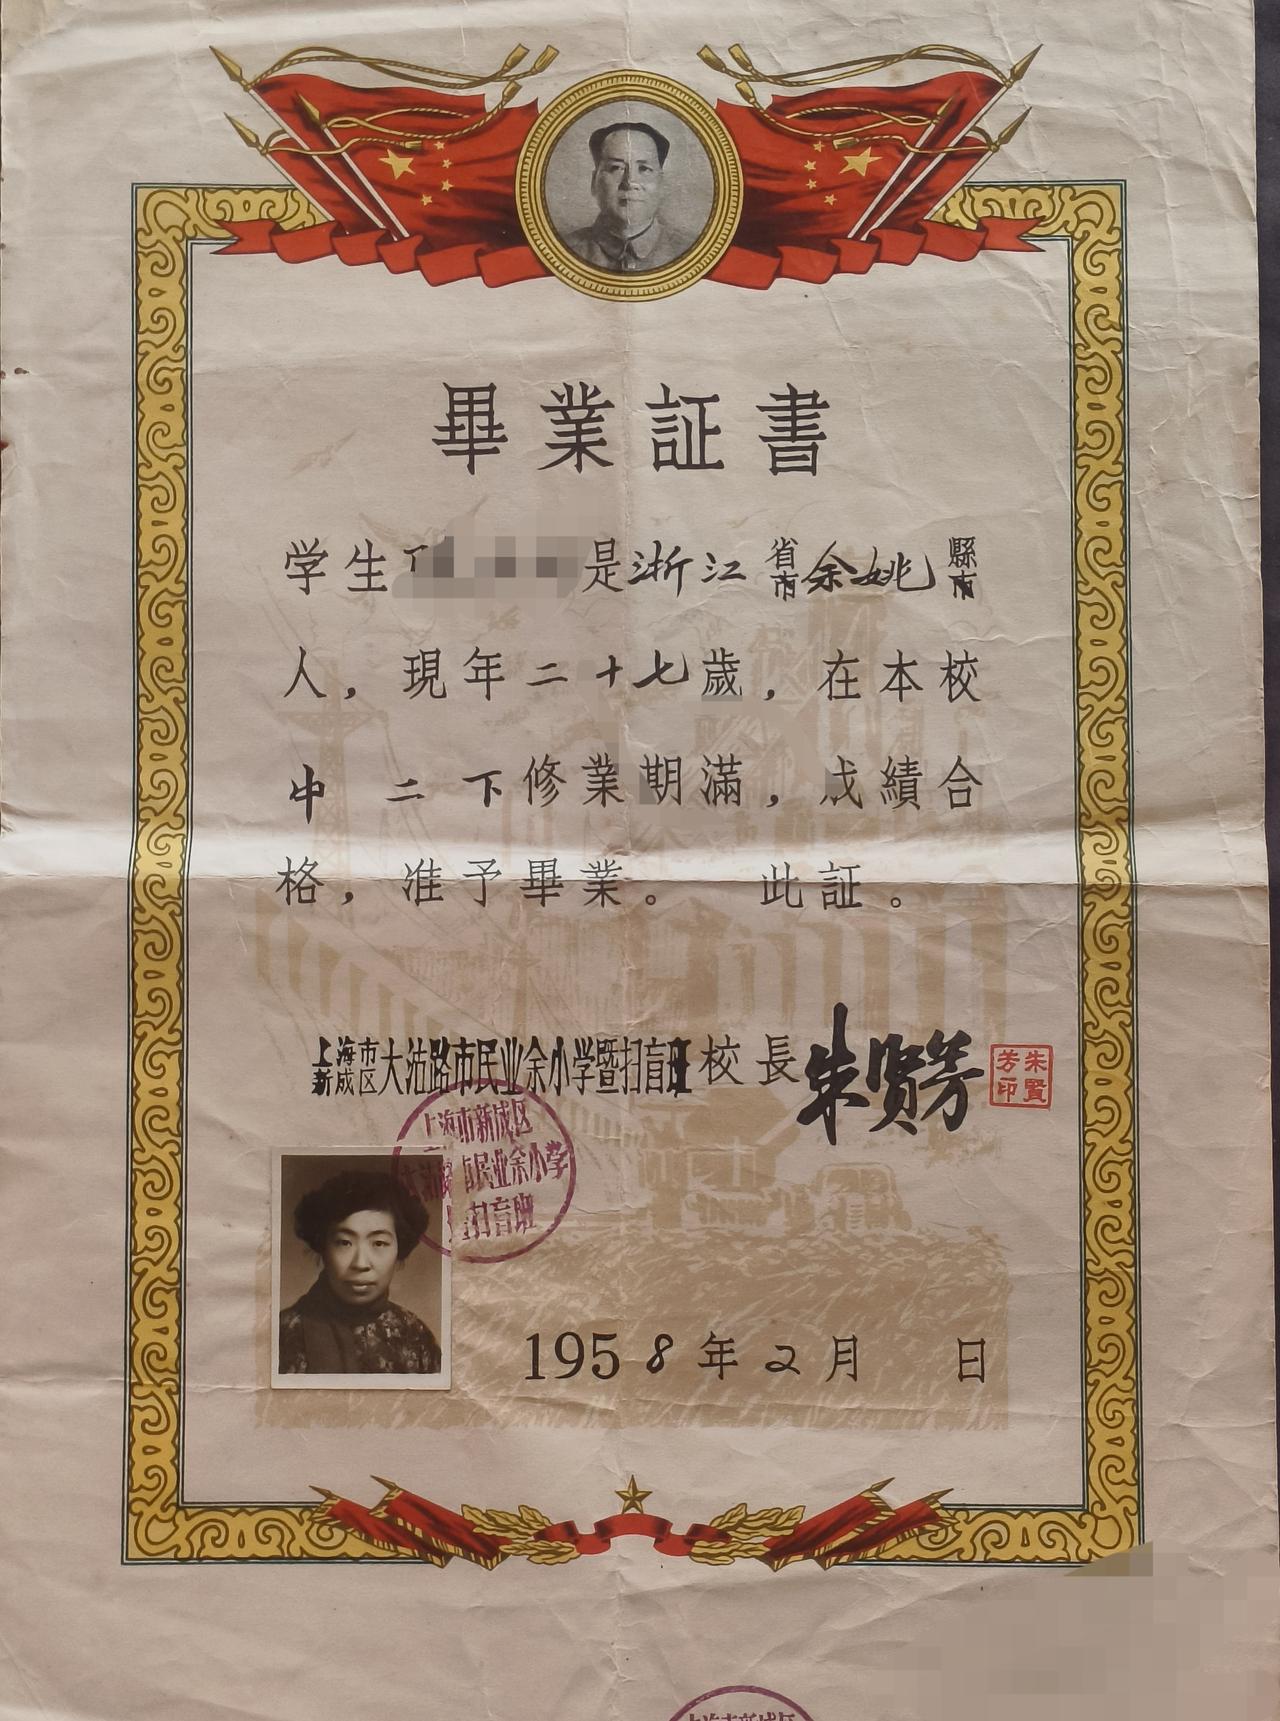 畢業証書
学生 是浙江省市余姚縣市
人，現年二十七歲，在本校
中二下修業期滿，成績合
格，准予畢業。 此証。
上海市新成区大沽路市民业余小学暨扫盲班校長朱贤芳
朱賢芳印
上海市新成区
大沽路市民业余小学
暨扫盲班
1958年2月 日
上海市新成区